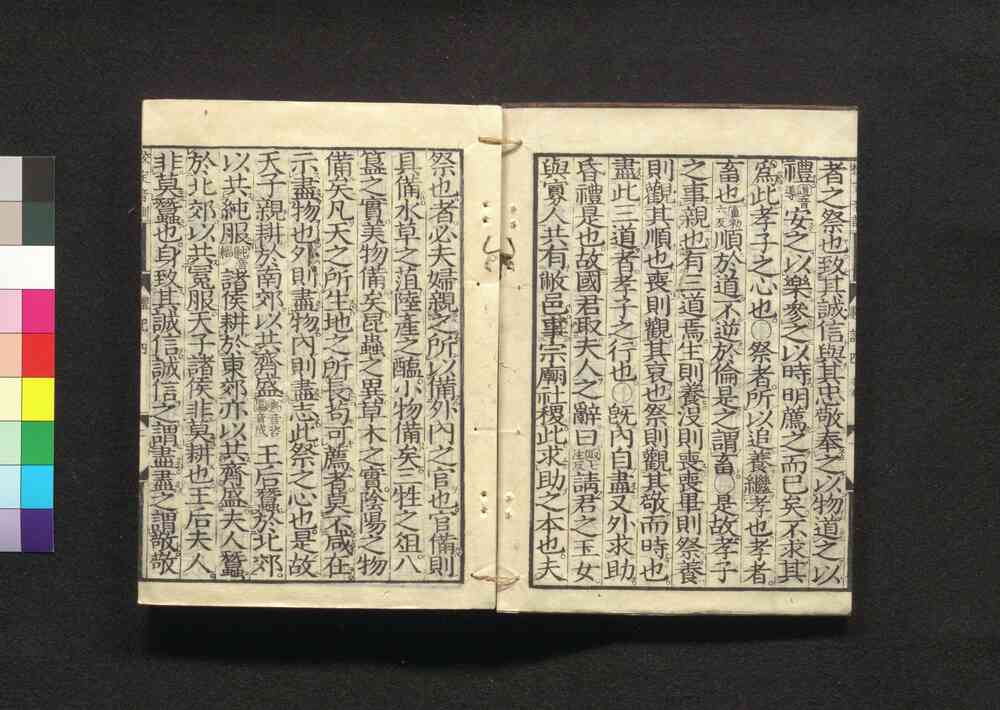 者之祭也致其誠信與其忠敬奉之以物道之以
禮道音導安之以樂參之以時明薦之而已矣不求其
爲此孝子之心也○祭者所以追養繼孝也孝者
畜也順於道不逆於倫是之謂畜○是故孝子
之事親也有三道焉生則養沒則喪喪畢則祭養
則觀其順也喪則觀其哀也祭則觀其敬而時也
盡此三道者孝子之行也○旣內自盡又外求助
昏禮是也故國君取夫人之辭曰請君之玉女
與寡人共有敝邑事宗廟社稷此求助之本也夫
祭也者必夫婦親之所以備外內之官也官備則
具備水草之菹陸產之醢小物備矣三牲之俎八
簋之實美物備矣昆蟲之異草木之實陰陽之物
備矣凡天之所生地之所長苟可薦者莫不咸在
示盡物也外則盡物內則盡志此祭之心也是故
天子親耕於南郊以共齊盛王后蠶於北郊
以共純服諸侯耕於東郊亦以共齊盛夫人蠶
於北郊以共冕服天子諸侯非莫耕也王后夫人
非莫蠶也身致其誠信誠信之謂盡盡之謂敬敬